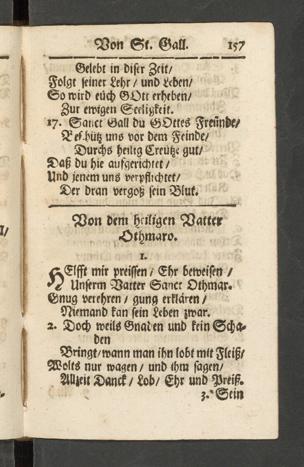 Von St. Gall. 157
Gelebt in diser Zeit/
Folgt seiner Lehr / und Leben/
So wird eüch GOtt erheben/
Zur ewigen Seeligkeit.
17. Sanct Gall du GOttes Freünde/
Beschütz uns vor dem Feinde/
Durchs heilig Creütze gut/
Daß du hie aufgerichtet/
Und jenem uns verpflichtet/
Der dran vergoß sein Blut.
Von dem heiligen Vatter
Othmaro.
1.
HElfft mir preissen / Ehr beweisen /
Unserm Vatter Sanct Othmar.
Gnug verehren / gung erklären /
Niemand kan sein Leben zwar.
2. Doch weils Gnaden und kein Scha-
den
Bringt/wann man ihn lobt mit Fleiß/
Wolts nur wagen / und ihm sagen/
Allzeit Danck / Lob/ Ehr und Preiß.
3. Stin